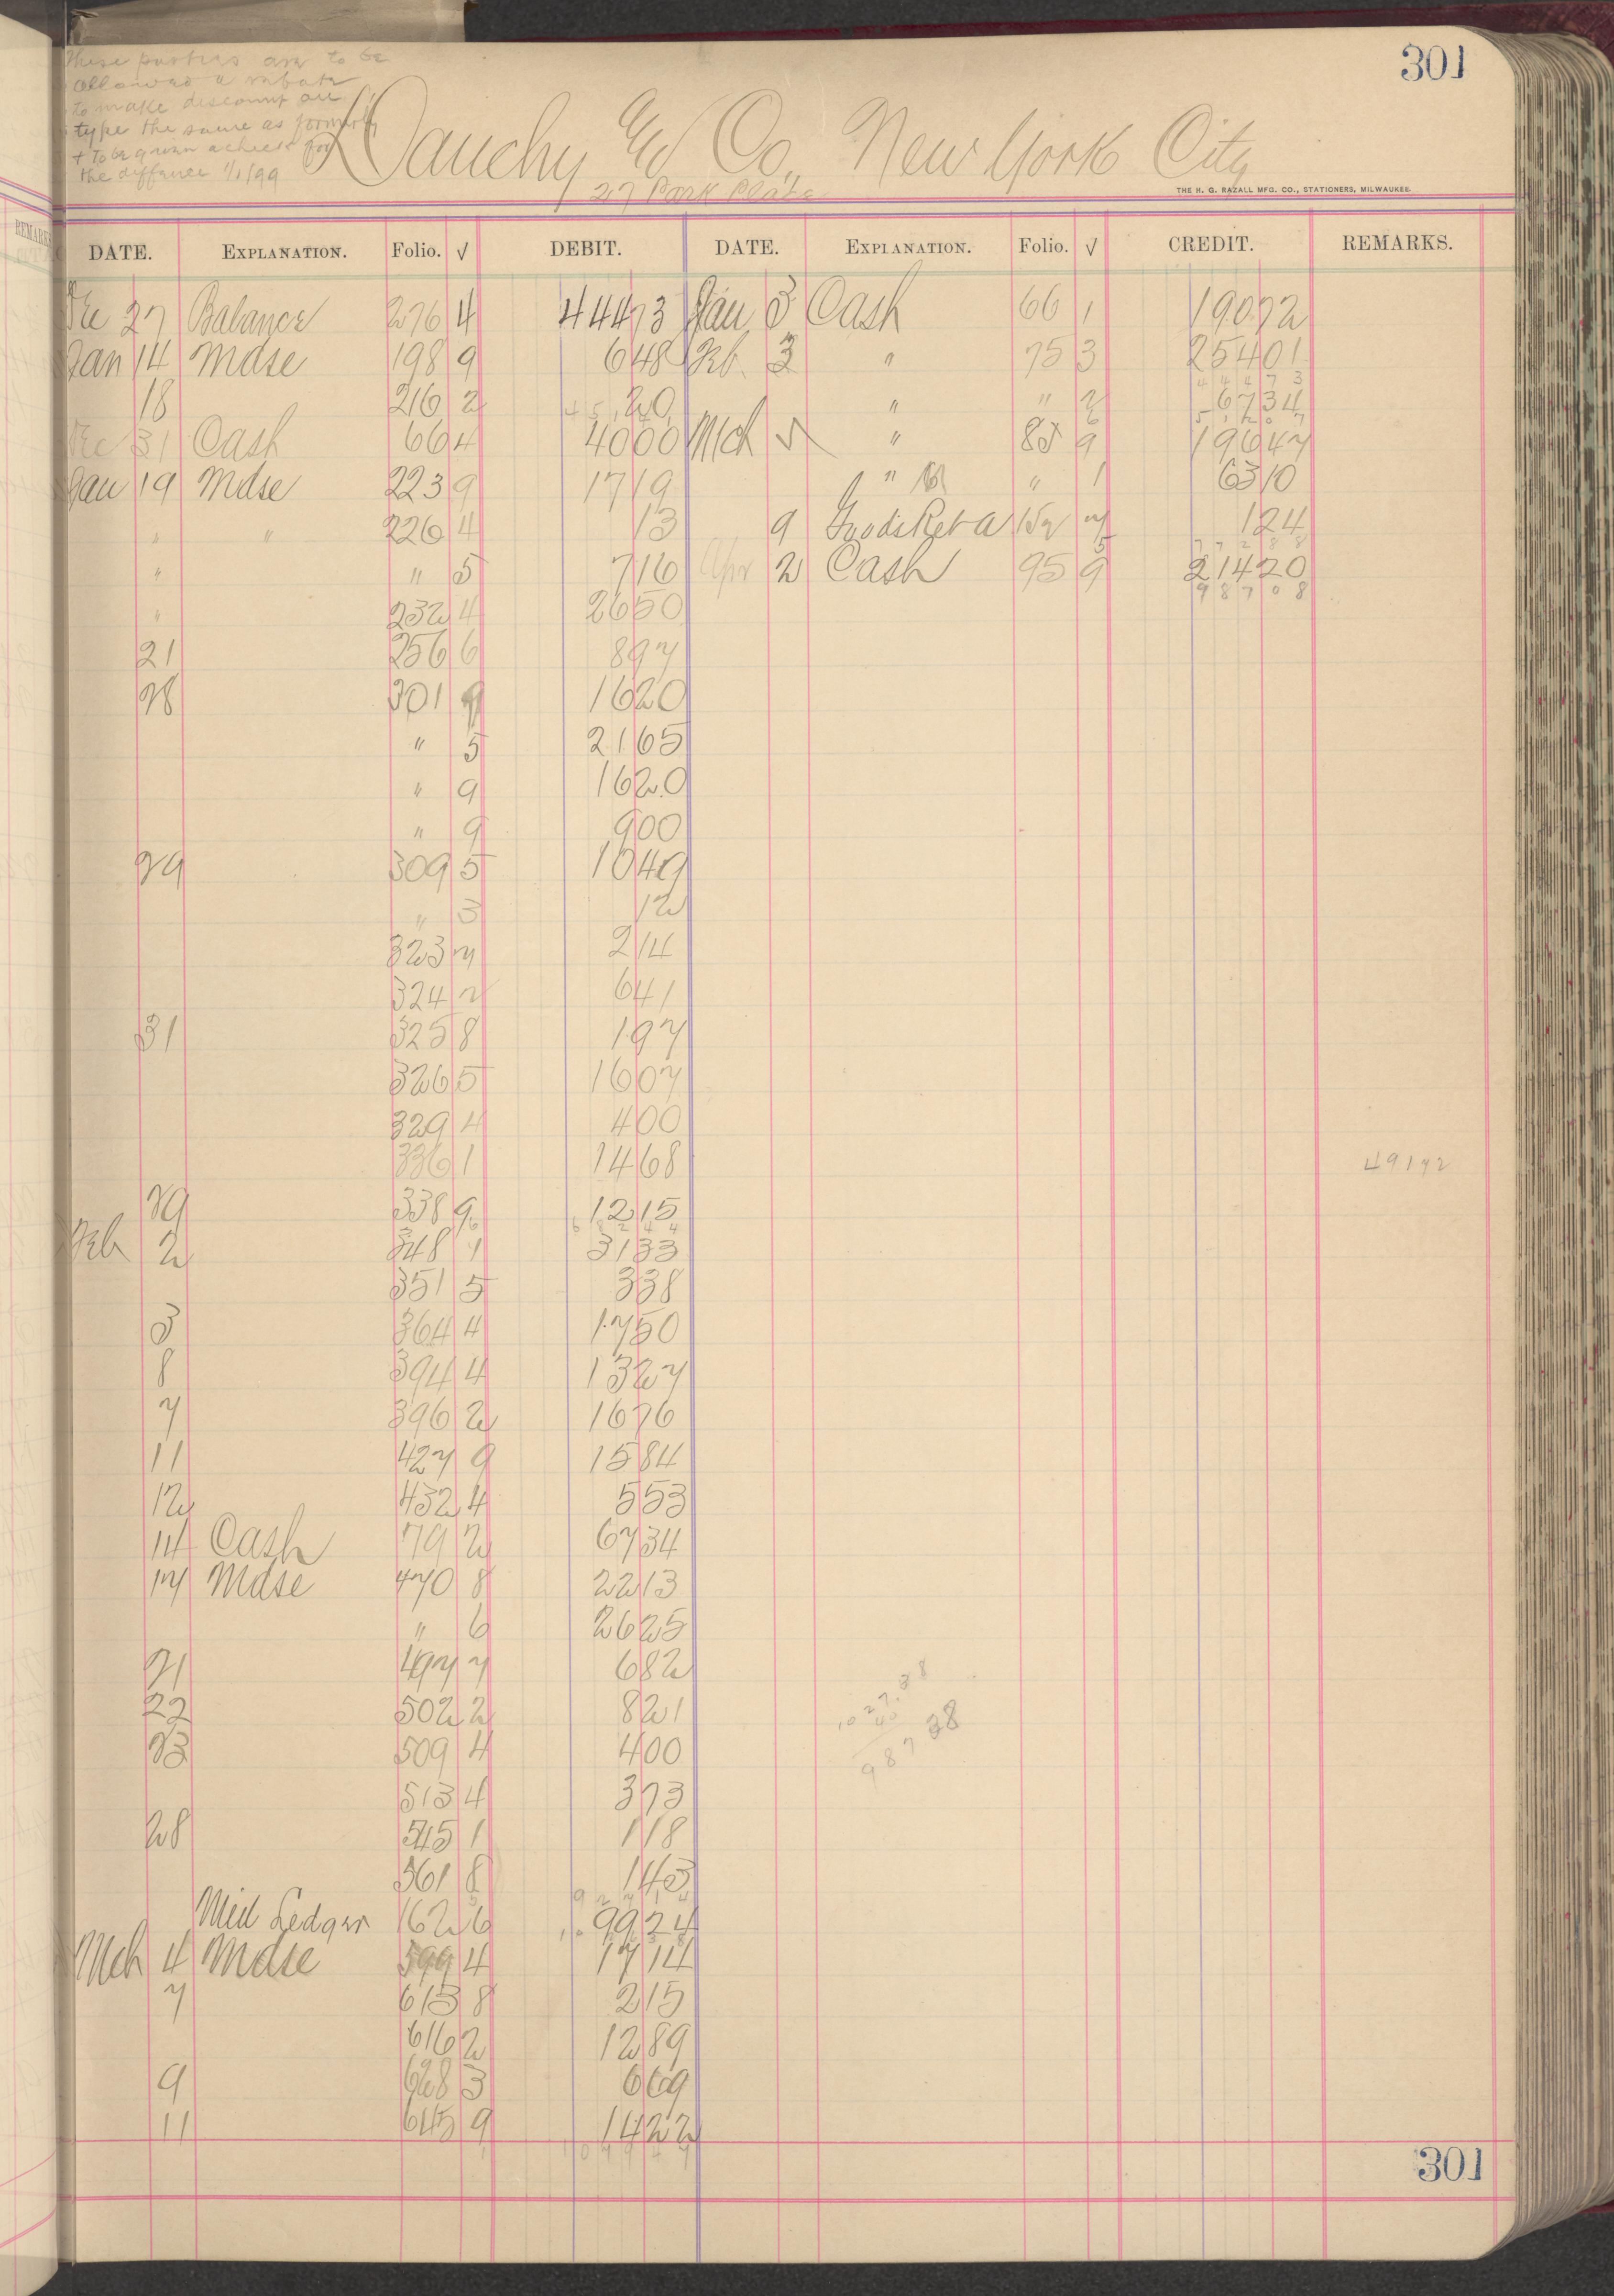 301
these parties are to be
allowed a rebate
to make discount on
type the same as formerly
+ to be given a check for
the differnce 1/1/99
Dauchy & Co., New York City
27 Park Place
THE H. G. RAZALL MFG. CO., STATIONERS, MILWAUKEE.
DATE. EXPLANATION. Folio. √ DEBIT. DATE. EXPLANATION. Folio. √ CREDIT. REMARKS.
Dec 27 Balance 276 4 444 73 Jan 3 Cash 66 1 190 72
Jan 14 Mdse 198 9 6 48 Feb. 3 " 75 3 254 01
444 73
18 216 2 20 " " 2 67 34
512 07
Dec 31 Cash 66 4 40 00 Mch " 85 9 196 47
Jan 19 Mdse 223 9 17 19 " " 1 63 10
" " 226 4 13 9 Goods Ret a 1 24
772 88
" " 5 7 16 Apr 2 Cash 95 9 214 20
987 08
" 232 4 26 50
21 256 6 8 97
28 301 9 16 20
" 5 21 65
" 9 16 20
" 9 9 00
29 309 5 10 49
" 3 12
323 7 2 14
324 2 6 41
31 325 8 1 97
326 5 16 07
329 4 4 00
336 1 14 68 49172
29 338 9 12 15
Feb 2 348 1 31 33
351 5 3 38
3 364 4 17 50
8 394 4 13 27
7 396 2 16 76
11 427 9 15 84
12 432 4 5 53
14 Cash 79 2 67 34
17 Mdse 470 8 22 13
" 6 26 25
21 497 7 6 82
1027.38
22 502 2 8 21
40
23 509 4 4 00
987 38
513 4 3 73
28 545 1 1 18
561 8 1 43
Mid Ledger 162 6 99 24
Mch 4 Mdse 599 4 17 14
7 613 8 2 15
616 2 12 89
9 628 3 6 69
11 645 9 14 22
301